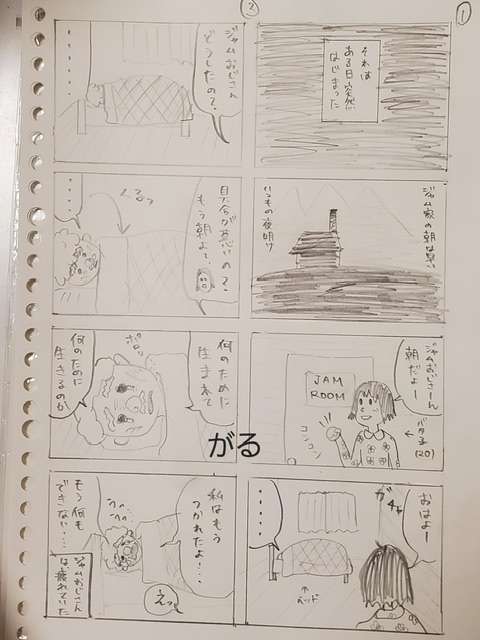 ①
それは
ある日突然
はじまった
ジャム家の朝は早い
いつもの夜明け
ジャムおじさーん
朝だよー
JAM
ROOM
コンコン
バタ子
(20)
おはよー
ガチャ
・・・・・
ベッド
②
ジャムおじさん
どうしたの?
・・・・・
具合が悪いの?
もう朝よ?、
くるっ
・・・・
何のために
生まれて
ポロッ
何のために
生きるのか
がる
私はもう
つかれたよ!・・
もう何も
できない・・・
えっ
ジャムおじさん
は疲れていた